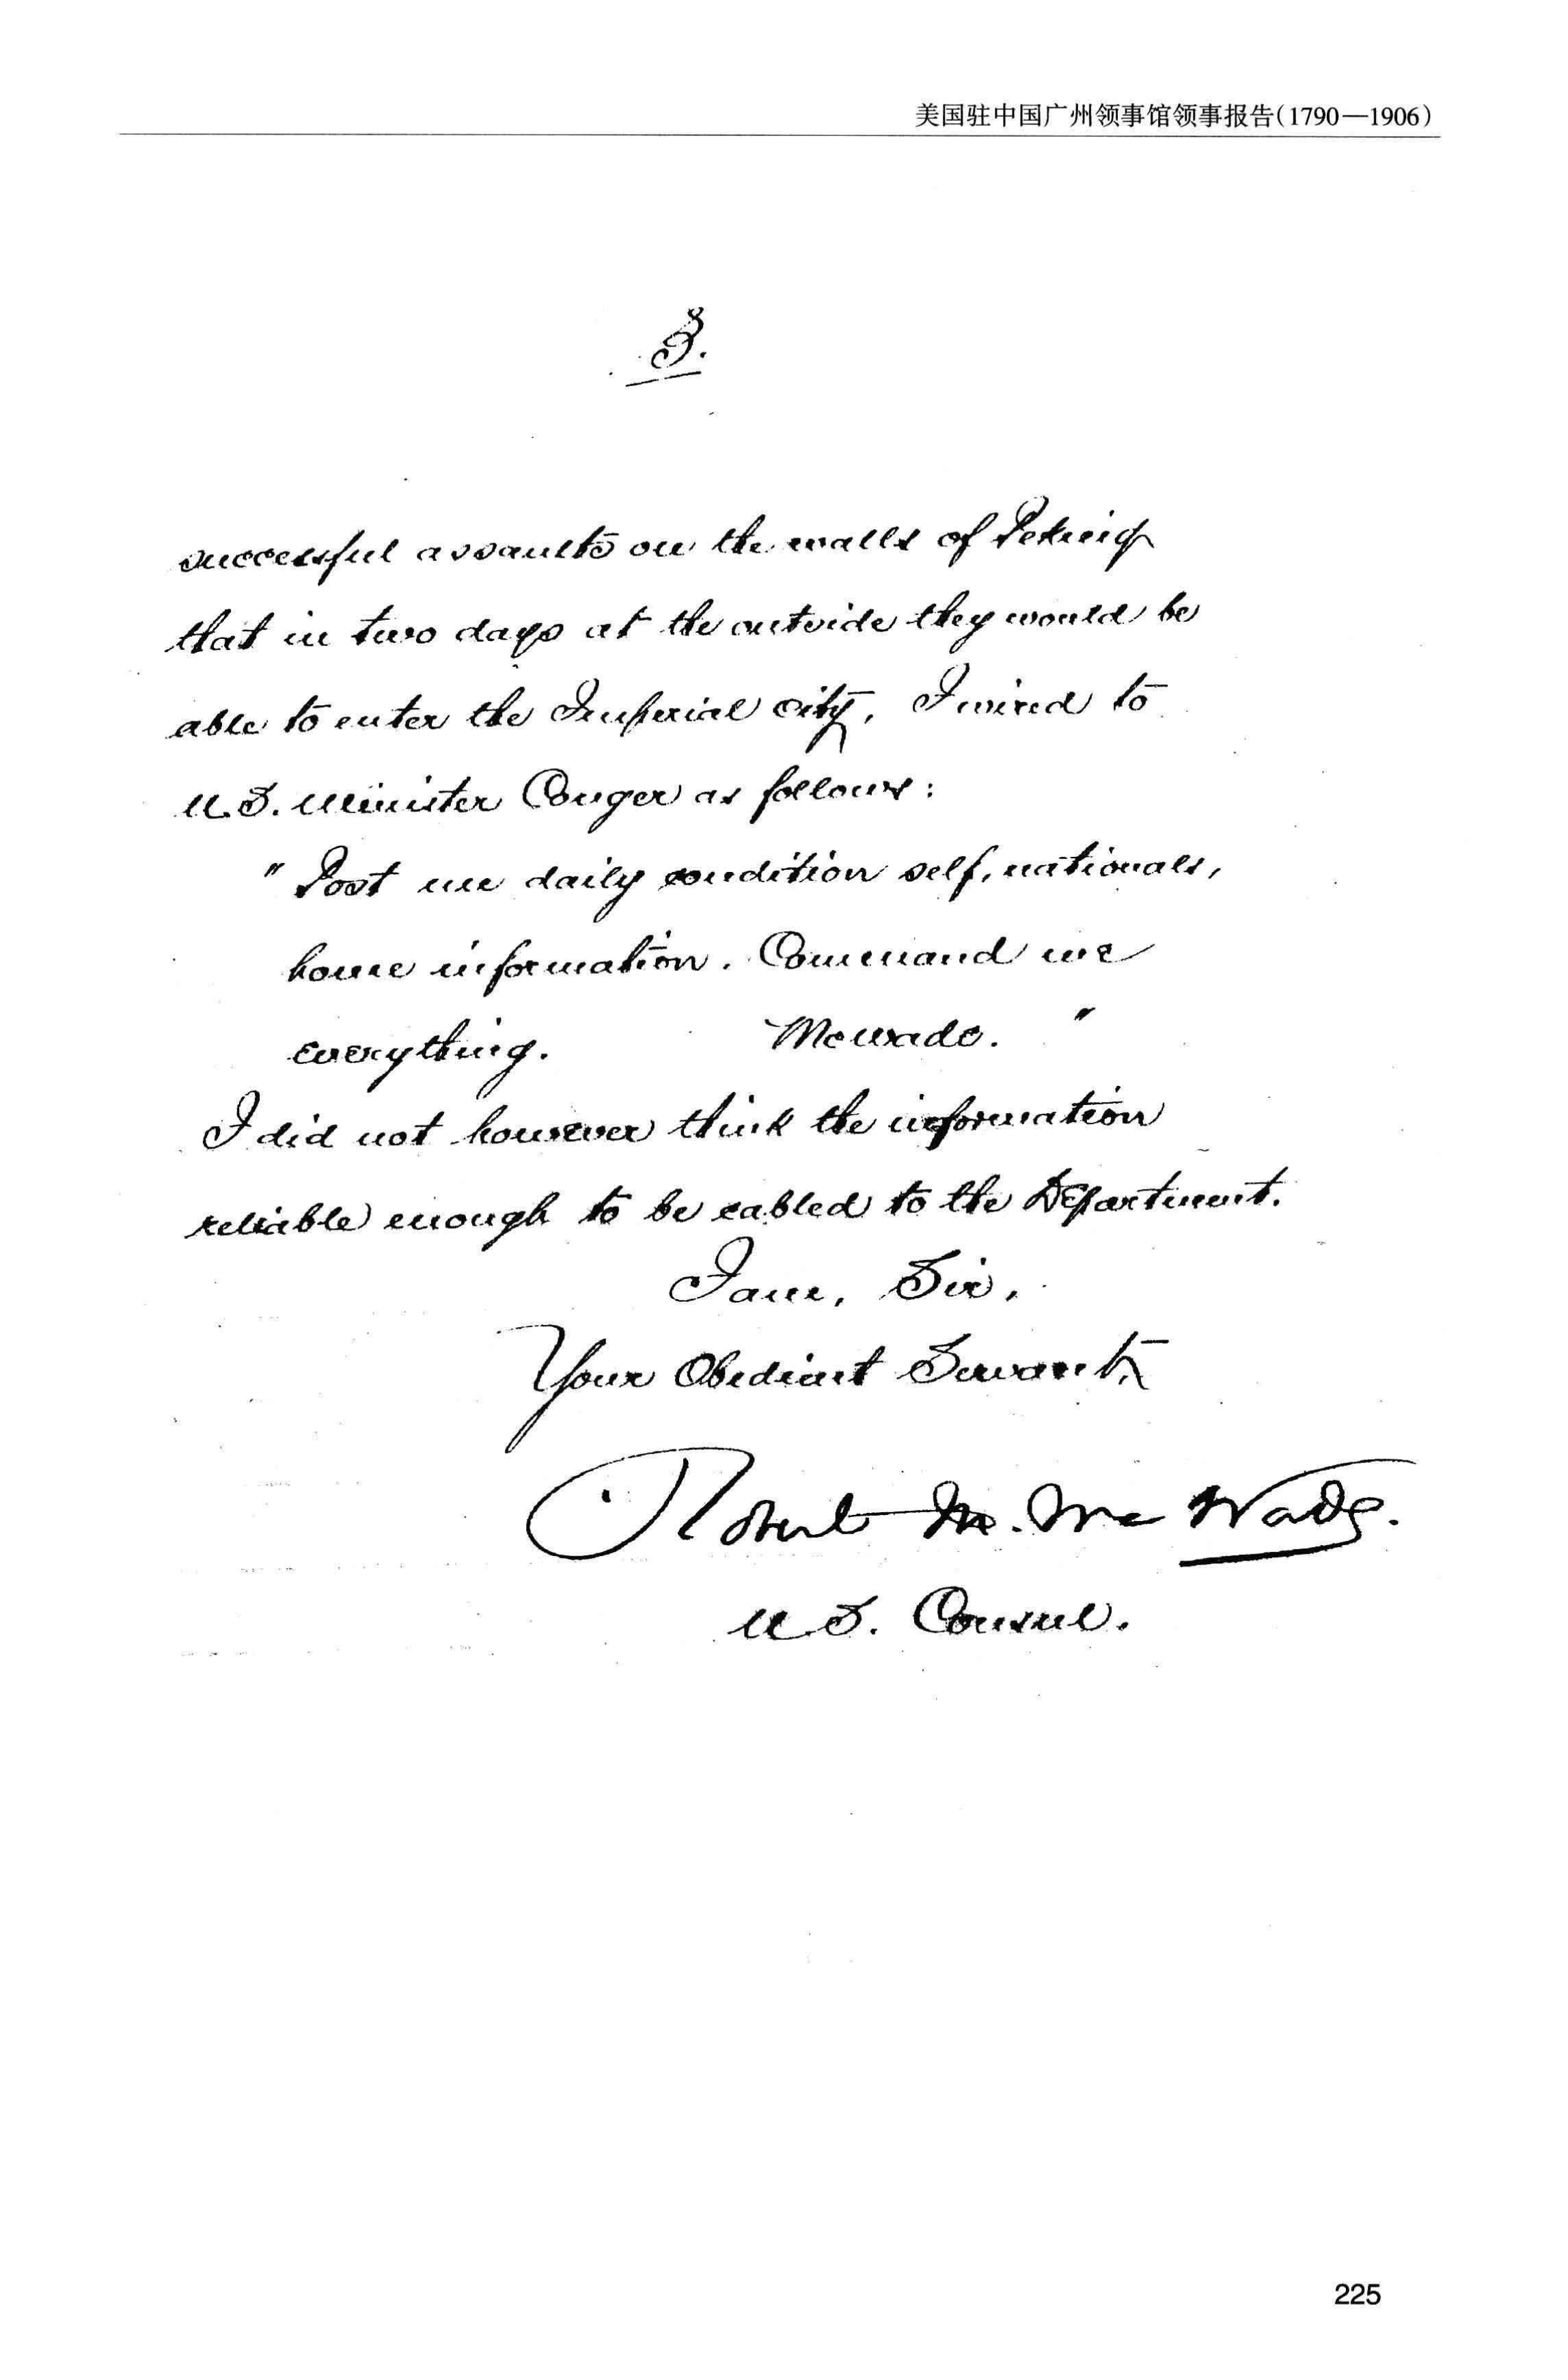 美国驻中国广州领事馆领事报告(1790—1906)
3.
successful assaults on the walls of Peking
that in two days at the outside they would be
able to enter the Imperial city, I wired to
U.S. Minister Conger as follows:
" Post me daily condition self, nationals,
home information. Command me
everything. McWade. "
I did not however think the information
reliable enough to be cabled to the Department.
I am, Sir,
Your Obedient Servant,
Robert M. McWade.
U.S. Consul.
225